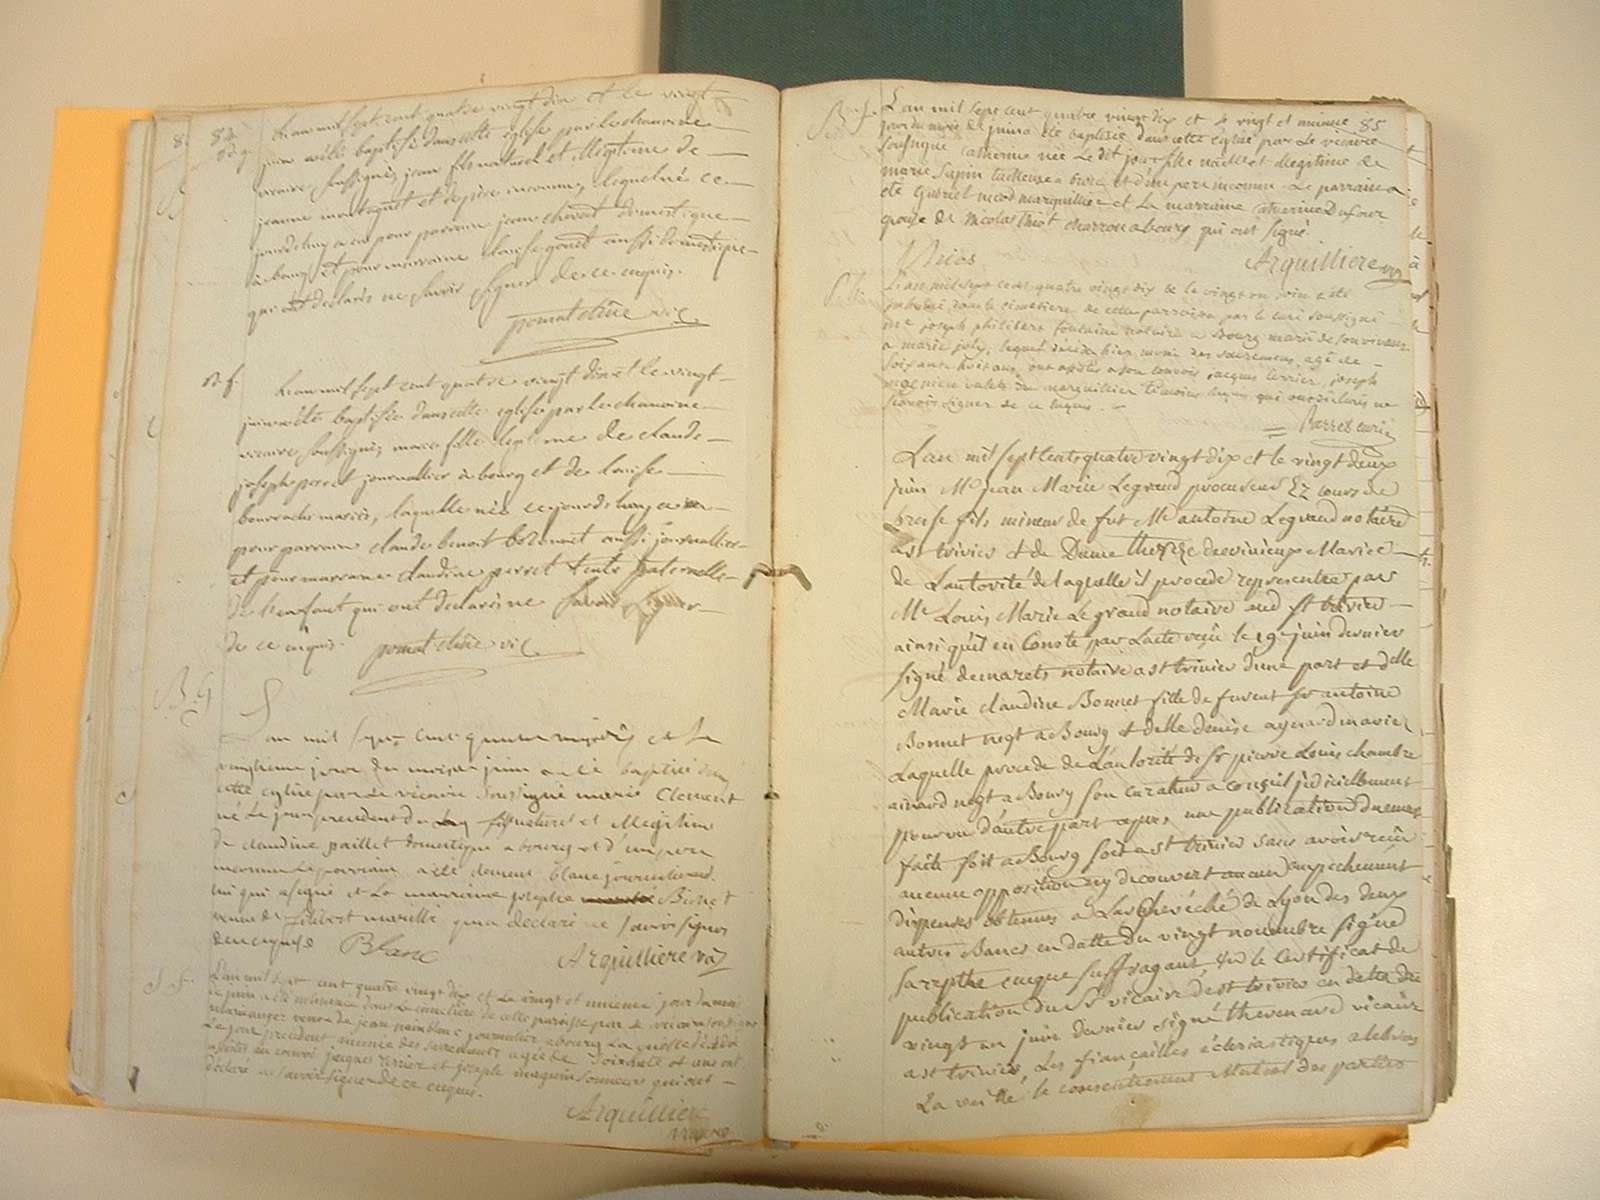 84
L'an mil sept cent quatre vingt dix et le vingt
juin a été baptisé dans cette église par le chanoine
vicaire soussigné, jean fils naturel et illégitime de
jeanne et de père inconnu, lequel né ce
jourd'huy a eu pour parrain jean domestique
à bourg et pour marraine aussi domestique
qui ont déclaré ne savoir signer de ce enquis.
vic.
B. f.
L'an mil sept cent quatre vingt dix et le vingt
juin a été baptisée dans cette église par le chanoine
vicaire soussigné, marie fille légitime de claude
joseph perret journallier à bourg et de louise
mariés, laquelle née ce jourd'huy a eu
pour parrain claude benoit aussi journallier
et pour marraine claudine perret tante paternelle
de l'enfant qui ont déclaré ne savoir signer
de ce enquis. vic.
B. G
L'an mil sept cent quatre vingt dix et le
vingtieme jour du mois de juin a été baptisé dans
cette eglise par le vicaire soussigné marie Clement
né le jour precedent du fils naturel et illegitime
de claudine paillet domestique a bourg et d'un pere
inconnu le parrain a été clement blanc journalier
qui a signé et la marraine
veuve de qui a declaré ne savoir signer
de ce enquise Blanc Arquilliere
S. f.
L'an mil sept cent quatre vingt dix et le vingt et unieme jour du mois
de juin a été inhumée dans le cimetière de cette paroisse par le vicaire soussigné
veuve de jean journalier a bourg
le jour precedent munie des sacrements agée de soixante et ans ont
assisté au convoi jacques terrier et joseph sonneurs qui ont
declaré ne savoir signer de ce enquis.
Arquilliere
vicaire
85
B. f.
L'an mil sept cent quatre vingt dix et le vingt et unieme
jour du mois de juin a été baptisée dans cette eglise par le vicaire
soussigné catherine née le dit jour fille naturelle et illegitime de
marie tailleuse a bourg et d'un pere inconnu. Le parrain a
été Gabriel nicod marguillier et la marraine catherine Dufour
epouse de nicolas charron a bourg qui ont signé
Nicod Arquilliere
L'an mil sept cent quatre vingt dix et le vingt un juin a été
inhumé dans le cimetiere de cette paroisse par le curé soussigné
me joseph philibert fontaine notaire a Bourg marié de son vivant
a marie joly, lequel décédé hier muni des sacremens, agé de
soixante huit ans, ont assisté a son convoi jacques terrier, joseph
valets du marguillier témoins requis qui ont déclaré ne
scavoir signer de ce enquis.
curé
L'an mil sept cent quatre vingt dix et le vingt deux
juin Me jean Marie Legrand procureur ez cours de
bresse fils mineur de fut Me antoine Legrand notaire
a st trivier et de Dame therese desvinieux Mariée
de Lautorité de laquelle il procede representée par
Me Louis Marie Legrand notaire aud st trivier
ainsi quil en Conste par Lacte reçu le 19e juin dernier
signé demarets notaire a st trivier dune part et delle
Marie claudine Bonnet fille de furent sr antoine
Bonnet negt a Bourg et delle denise aynard mariés
Laquelle procede de Lautorité de sr pierre Louis chambre
ainard negt a Bourg son curateur a conseil judiciellement
pourvu d'autre part apres une publication du
faite soit a Bourg soit a st trivier sans avoir reçu
aucune opposition ny decouvert aucun empechement
dispenses obtenues a Larchevéché de Lyon des deux
autres Bancs en datte du vingt novembre signé
sarepthe eveque suffragant, vu le certificat de
publication du Sr vicaire de st trivier en datte du
vingt un juin dernier signé thevenard vicaire
a st trivier, Les fiançailles écleriastiques celebrées
La veille le consentement Mutuel des parties